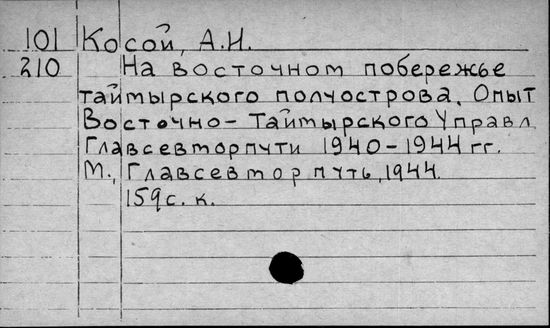 101 Косой, А.И.
210 На восточном побережье
таймырского полуострова. Опыт
Восточно-Таймырского Управл.
Главсевторпути 1940-1944 гг.
М., Главсевторпуть, 1944.
159с. к.